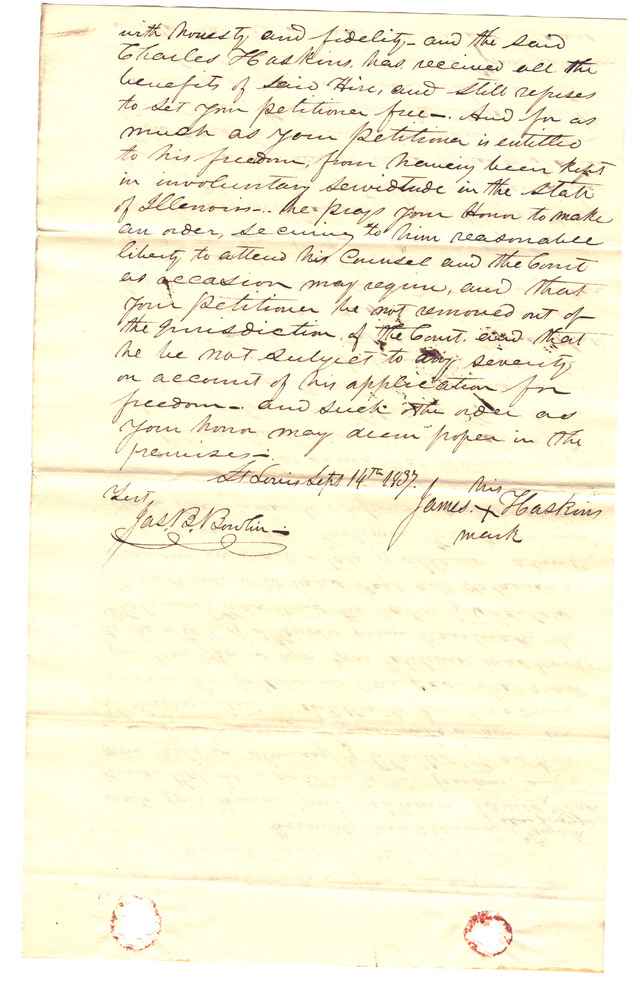 with honesty and fidelity - and the said
Charles Haskins, has received all the
benefits of said Hire, and still refuses
to set your petitioner free -. And for as
much as your petitioner is entitled
to his freedom, from having been kept
in involuntary servidtude in the State
of Illenoirs -. he prays your Honor to make
an order, securing to him reasonable
liberty to attend his Counsel and the Court
as occasion may require, and that
your petitioner be not removed out of
the jurisdiction, of the Court. and that
he be not subject to any severity
on account of his application for
freedom -. and such other order as
your honor may deem proper in the
premises -.
St Louis Sept 14th 1837.
Test
his
James. X Haskins
mark
Jas. B. Bowlin -